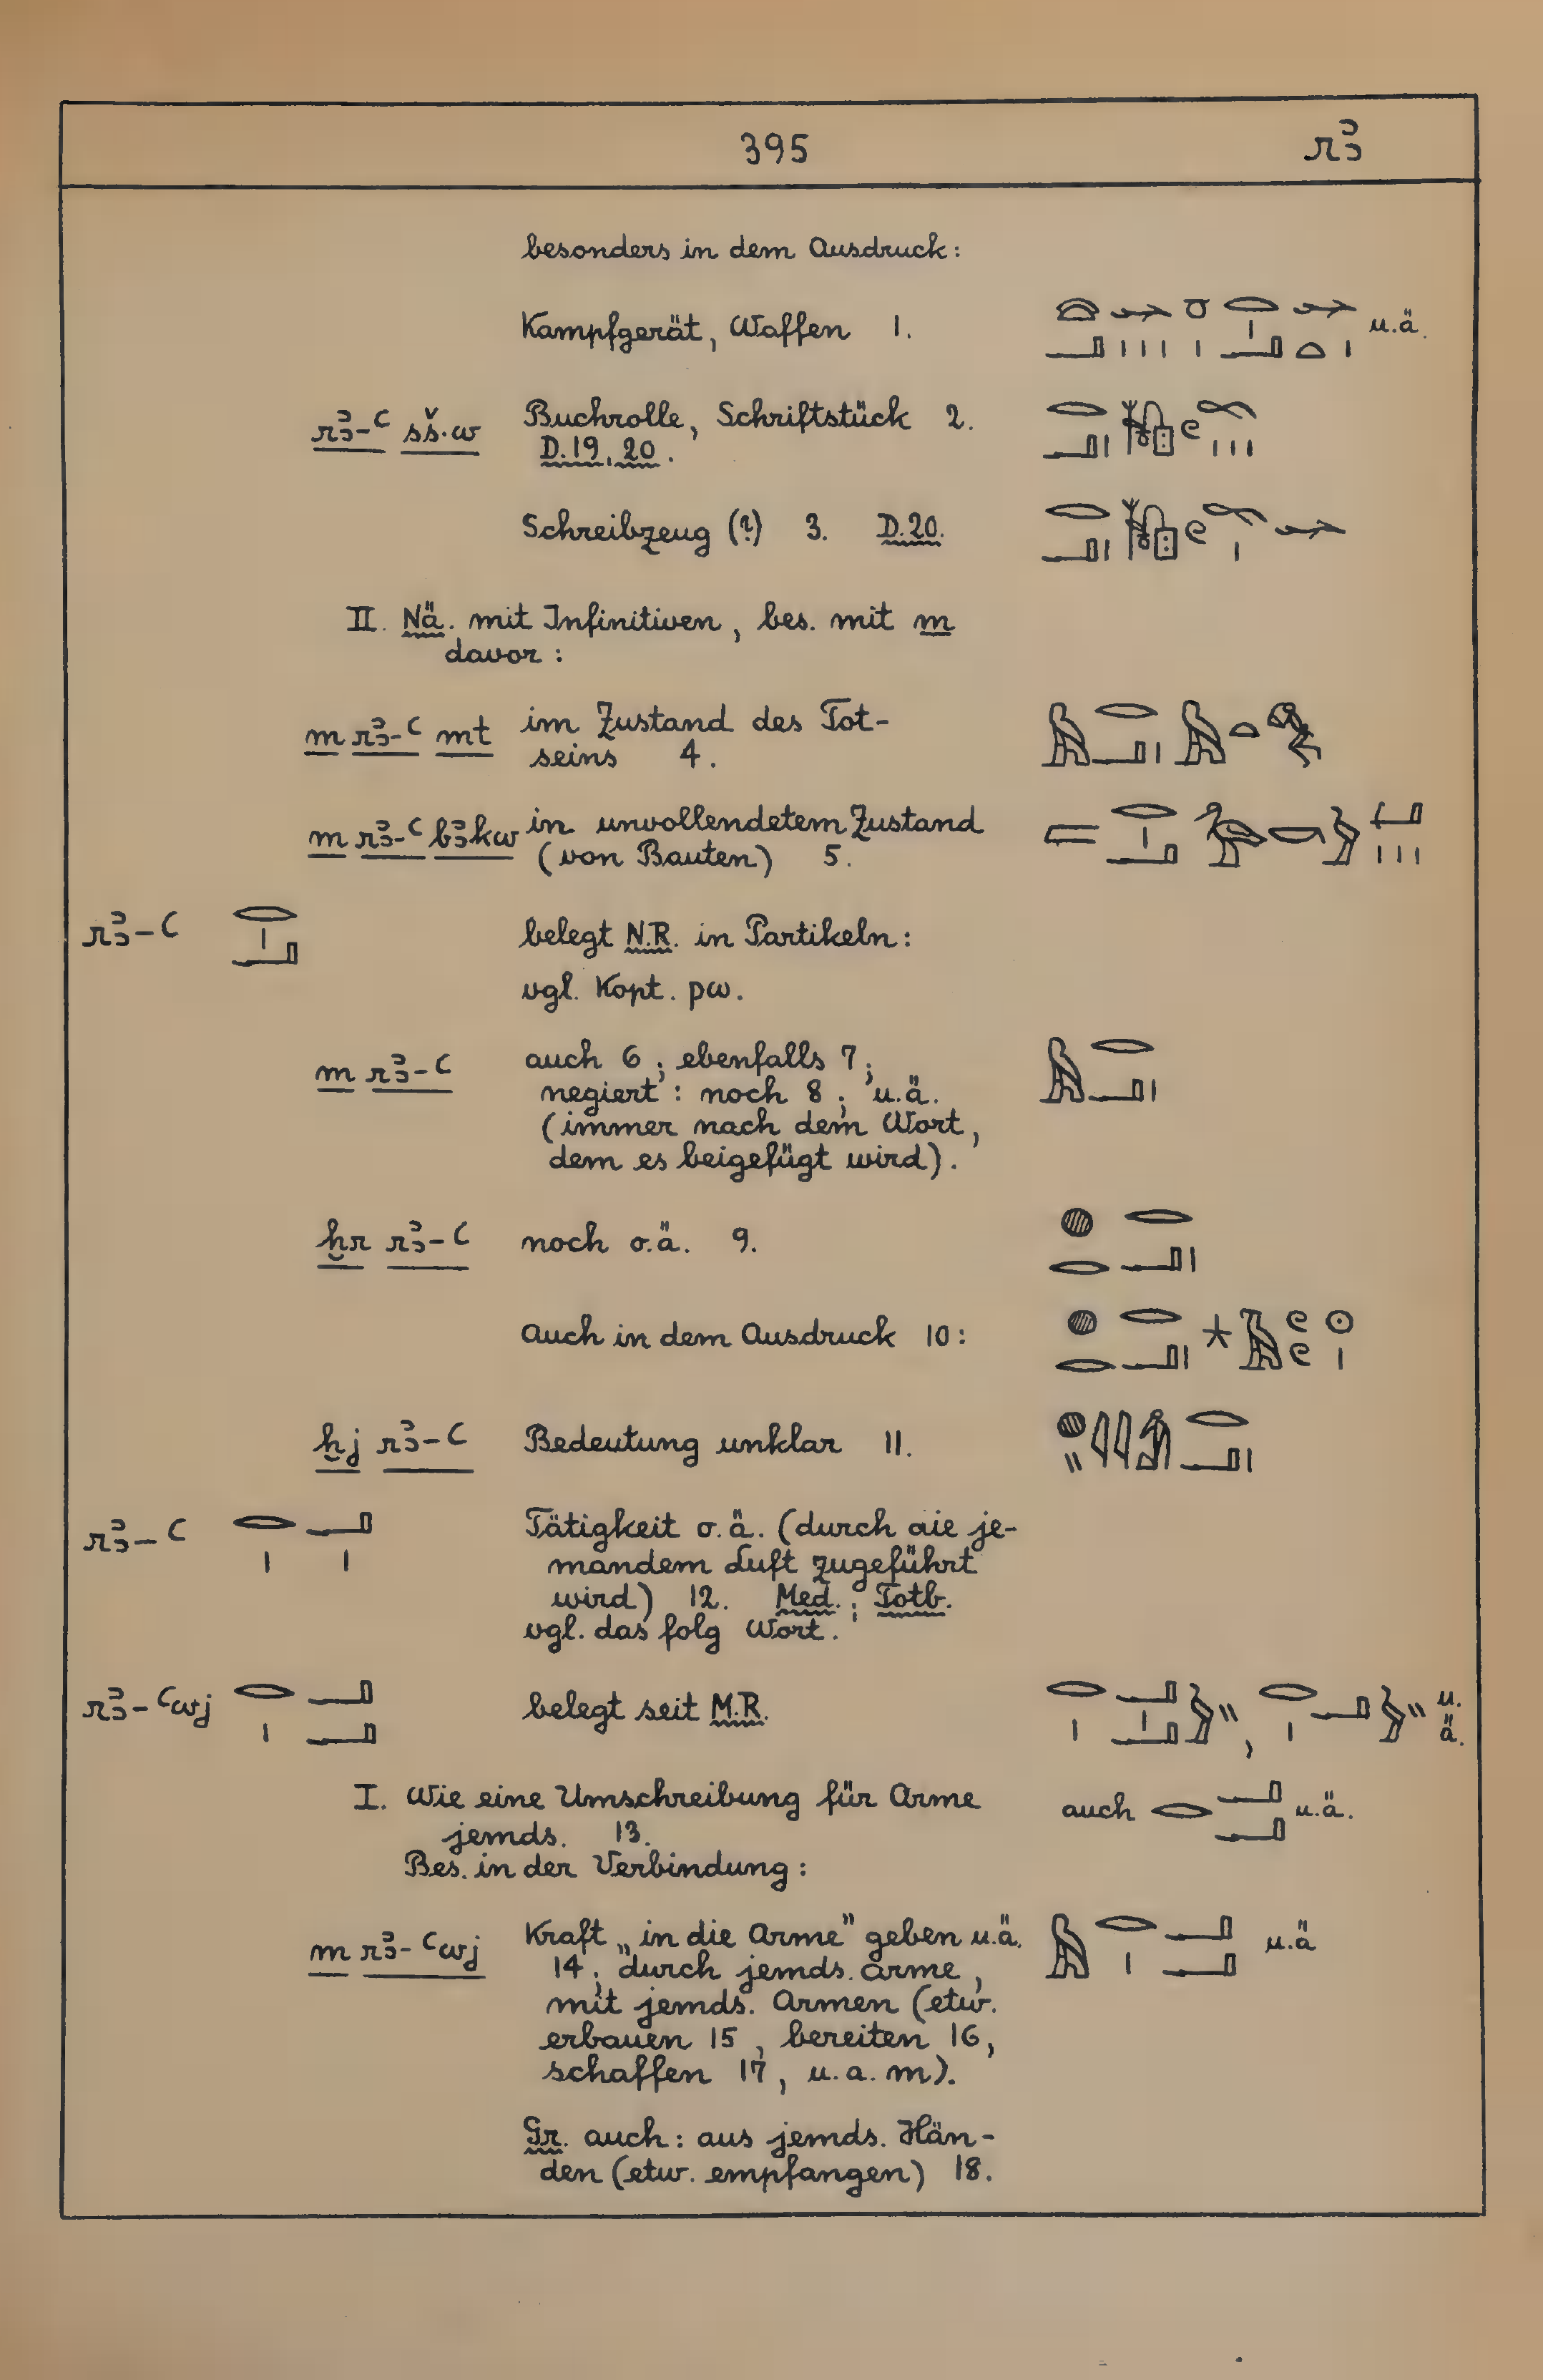 395 rꜣ
besonders in dem Ausdruck:
Kampfgerät, Waffen 1. u.ä.
rꜣ-ꜥ sš.w Buchrolle, Schriftstück 2.
D.19, 20.
Schreibzeug (?) 3. D.20.
II. Nä. mit Infinitiven, bes. mit m
davor:
m rꜣ-ꜥ mt im Zustand des Tot-
seins 4.
m rꜣ-ꜥ bꜣkw in unvollendetem Zustand
(von Bauten) 5.
rꜣ-ꜥ belegt N.R. in Partikeln:
vgl. Kopt. ⲣⲱ.
m rꜣ-ꜥ auch 6; ebenfalls 7;
negiert: noch 8; u.ä.
(immer nach dem Wort,
dem es beigefügt wird).
ḫr rꜣ-ꜥ noch o.ä. 9.
Auch in dem Ausdruck 10:
ḫj rꜣ-ꜥ Bedeutung unklar 11.
rꜣ-ꜥ Tätigkeit o.ä. (durch die je-
mandem Luft zugeführt
wird) 12. Med.; Totb.
vgl. das folg Wort.
rꜣ-ꜥwj belegt seit M.R. , u.
ä.
I. Wie eine Umschreibung für Arme auch u.ä.
jemds. 13.
Bes. in der Verbindung:
m rꜣ-ꜥwj Kraft „in die Arme" geben u.ä. u.ä
14; durch jemds. Arme,
mit jemds. Armen (etw.
erbauen 15, bereiten 16,
schaffen 17, u.a.m).
Gr. auch: aus jemds. Hän-
den (etw. empfangen) 18.